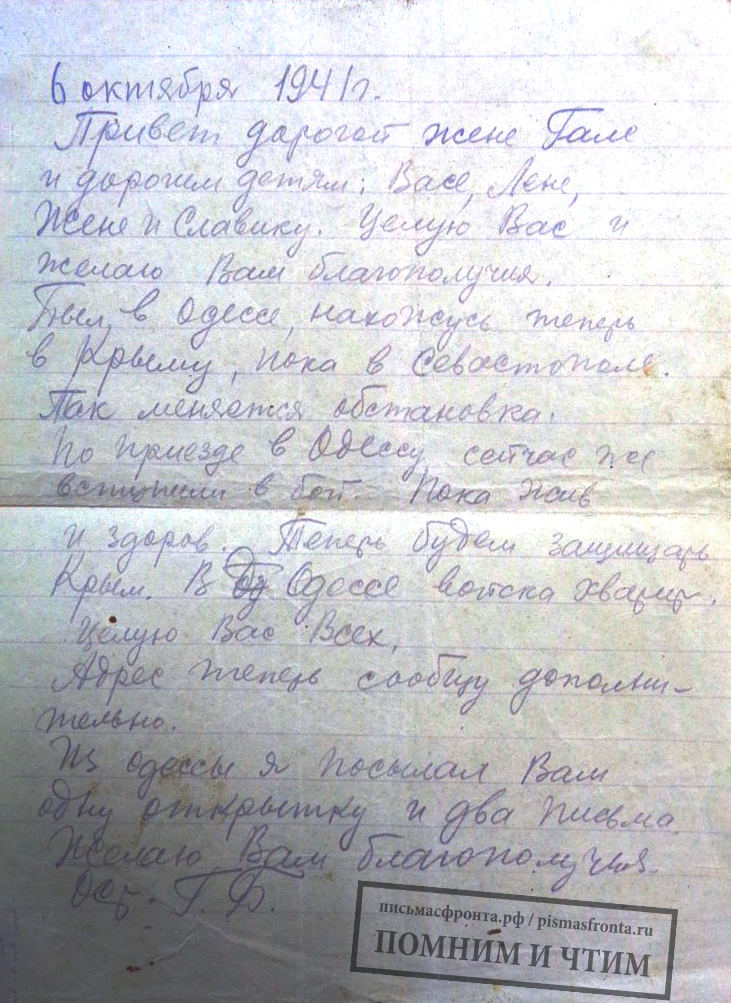 6 октября 1941г.
Привет дорогой жене Гале
и дорогим детям: Васе, Лене,
Жене и Славику. Целую Вас и
желаю Вам благополучия.
Был в Одессе, нахожусь теперь
в Крыму, пока в Севастополе.
Так меняется обстановка.
По приезде в Одессу сейчас же
вступили в бой. Пока жив
и здоров. Теперь будем защищать
Крым. В Одессе войска хватит.
Целую Вас Всех,
Адрес теперь сообщу дополни-
тельно.
Из Одессы я посылал Вам
одну открытку и два письма.
Желаю Вам благополучия.
Г. Ф.
письмасфронта.рф / pismasfronta.ru
ПОМНИМ И ЧТИМ